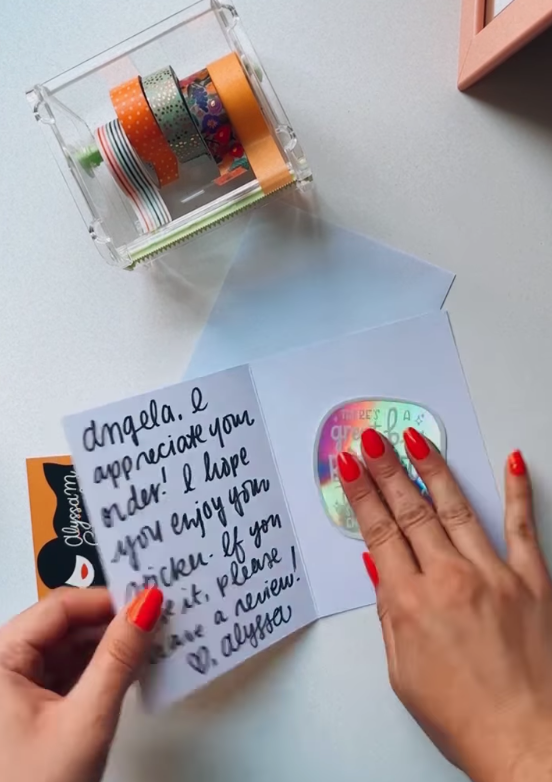 Angela. I
appreciate your
order! I hope
you enjoy your
sticker. If you
it, please
leave a review!
♡, alyssa
Alyssa M
A
great